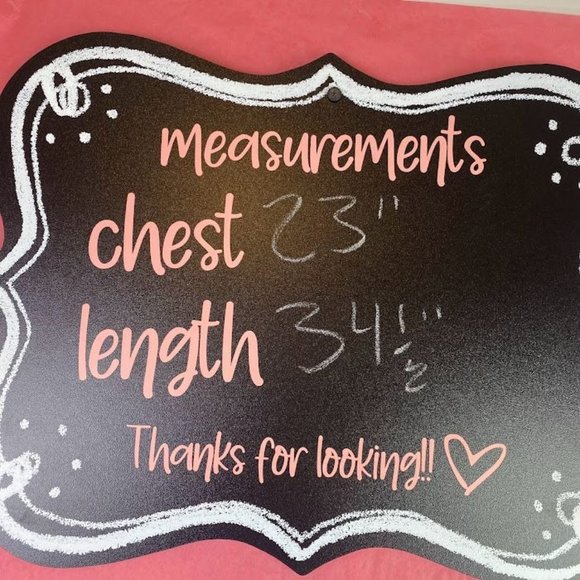 measurements
chest 23"
length 34 1/2"
Thanks for looking!!